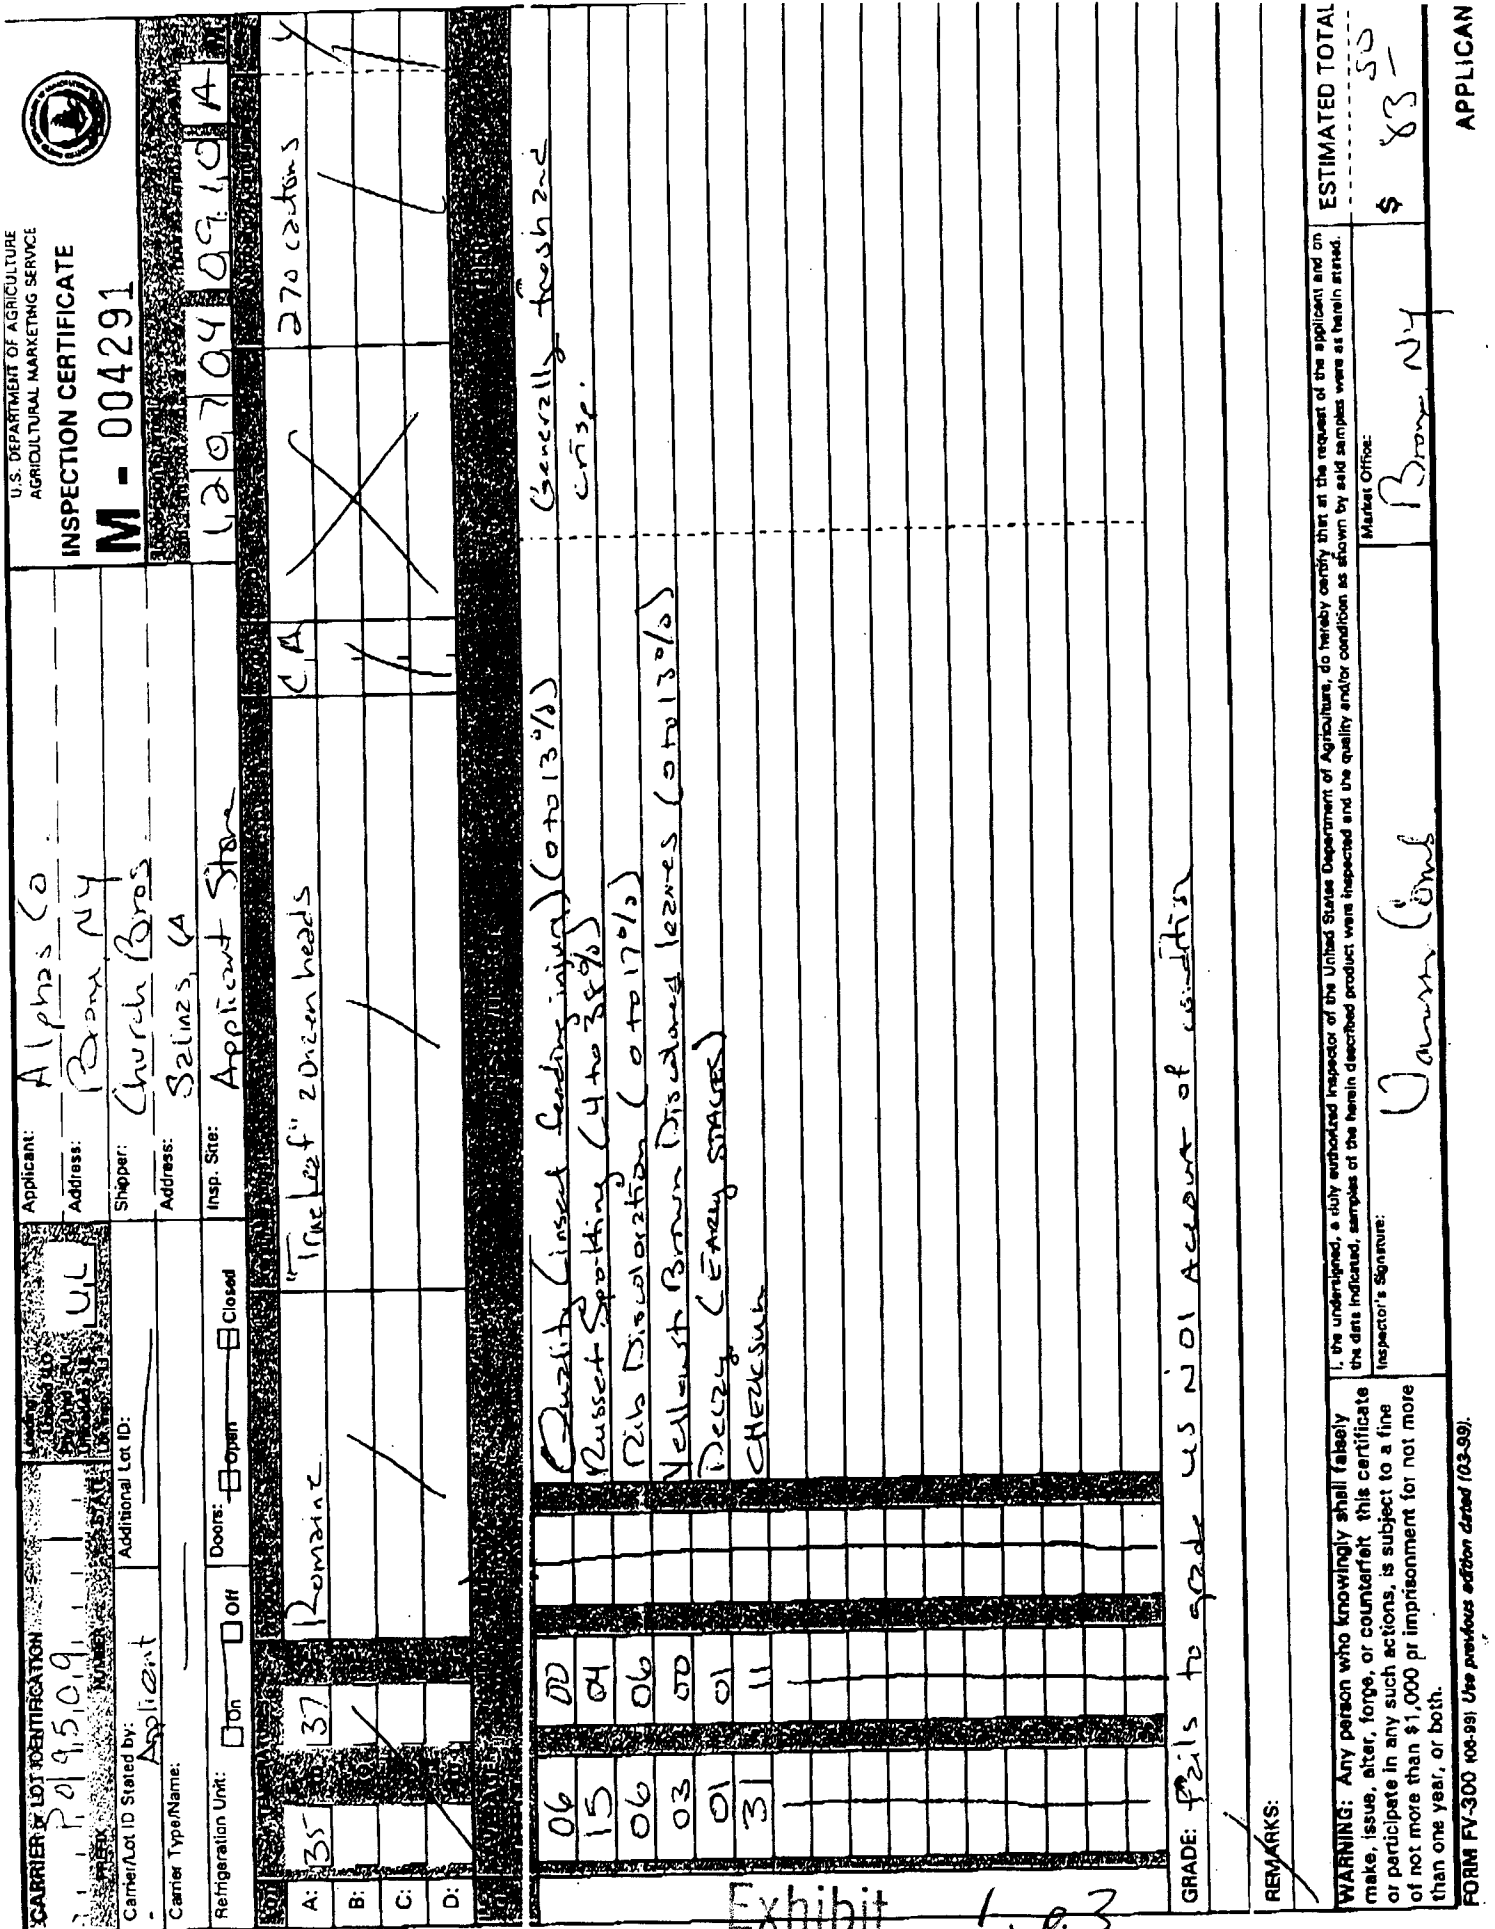 U.S. DEPARTMENT OF AGRICULTURE
AGRICULTURAL MARKETING SERVICE
INSPECTION CERTIFICATE
M - 004291
CARRIER or LOT IDENTIFICATION
PREFIX NUMBER STATE
U,L
Carrier/Lot ID Stated by: Applicant
Additional Lot ID:
Carrier Type/Name:
Refrigeration Unit: On Off
Doors: Open Closed
Applicant: Alphas Co
Address: Bronx, NY
Shipper: Church Bros
Address: Salinas, CA
Insp. Site: Applicant Store
12 07 04 09:10 A
A: 35 37 Romaine "True Leaf" 2 Dozen heads C A 270 cartons Y
B:
C:
D:
06 00 Quality (insect feeding injury) (0 to 13%) Generally fresh and
15 04 Russet Spotting (4 to 38%) crisp.
06 06 Rib Discoloration (0 to 17%)
03 00 Yellow to Brown Discolored leaves (0 to 13%)
01 01 Decay (EARLY STAGES)
31 11 CHECKSUM
GRADE: Fails to grade US NO1 Account of condition
REMARKS:
WARNING: Any person who knowingly shall falsely
make, issue, alter, forge, or counterfeit this certificate
or participate in any such actions, is subject to a fine
of not more than $1,000 or imprisonment for not more
than one year, or both.
I, the undersigned, a duly authorized inspector of the United States Department of Agriculture, do hereby certify that at the request of the applicant and on
the date indicated, samples of the herein described product were inspected and the quality and/or condition as shown by said samples were as herein stated.
Inspector's Signature:
Market Office:
Bronx, NY
ESTIMATED TOTAL
$ 83 50
FORM FV-300 (06-99) Use previous edition dated (03-99).
APPLICAN
Exhibit